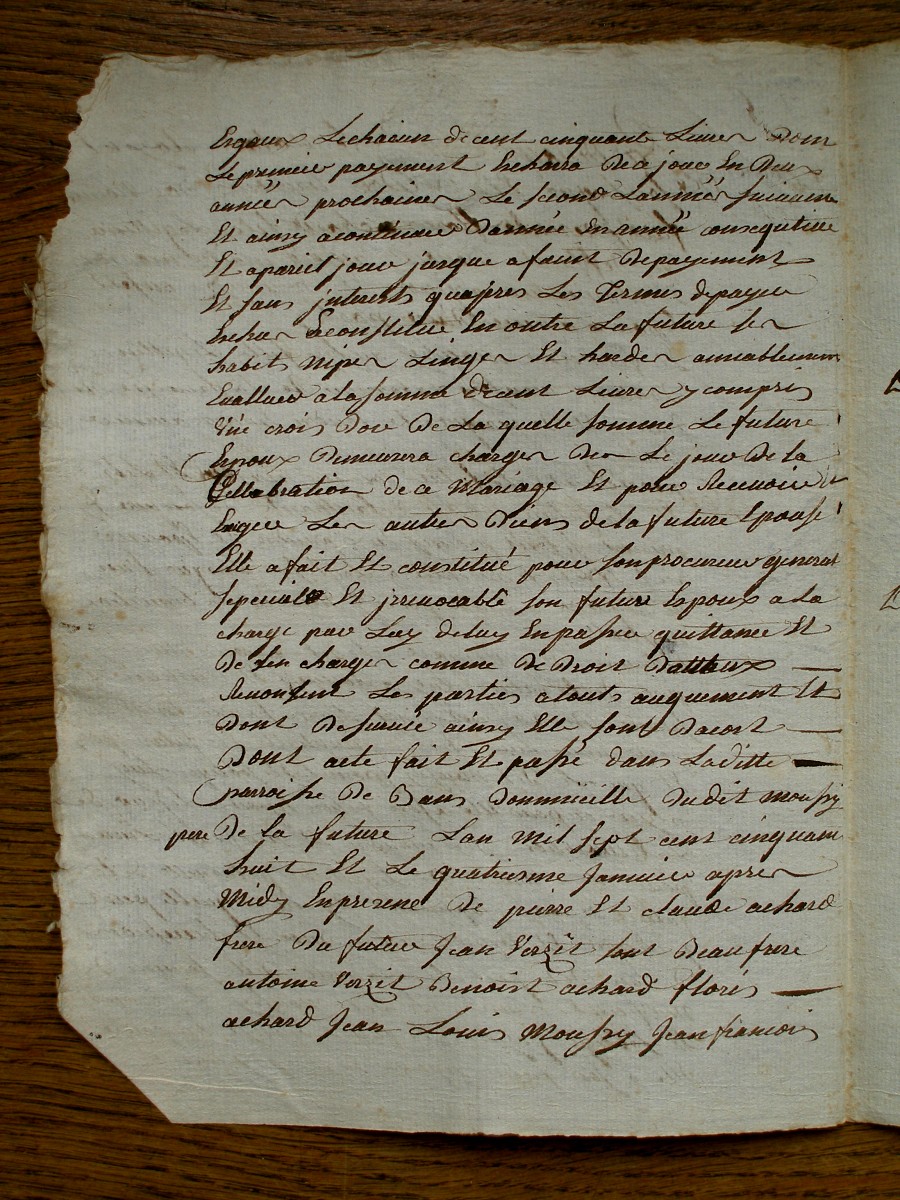 Egaux Lechacun de cent cinquante Livres Dont
Le premier payement Echerra De ce jour En Deux
années prochaines Le second Lannée suivante
Et ainsy a continuer Dannée En année consequtive
Et apareil jour jusque a faint De payement
Et sans interets quapres Les Termes de payer
Echus Se constitue En outre La future ses
habit nipes Linges Et hardes amiablement
Evallues a La somme de cent Livres y compris
Vne crois Dor De La quelle somme Le future
Espoux Demeurera charger Des Le jour De la
Cellabration de ce Mariage Et pour Recevoir Et
Exiger Les autres Biens de la future Epouse
Elle a fait Et constitué pour son procureur general
special Et irrevocable son future Espoux a la
charge par Luy deluy En passer quittance Et
De sen charger comme De Droit Dailleux
Renonsent Les parties a touts augument Et
Dont De survie ainsy Elle sont Dacort
Dont acte fait Et passé dans Laditte
parroisse De Bans Dommicille Dudit moussy
pere De la future Lan mil sept cent cinquante
huit Et Le quatriesme Janvier apres
Midy En presence De pierre Et claude achard
frere Du futur Jean Verzit sont Beaufrere
antoine Verzit Benoist achard floris
achard Jean Louis Moussy Jean francois